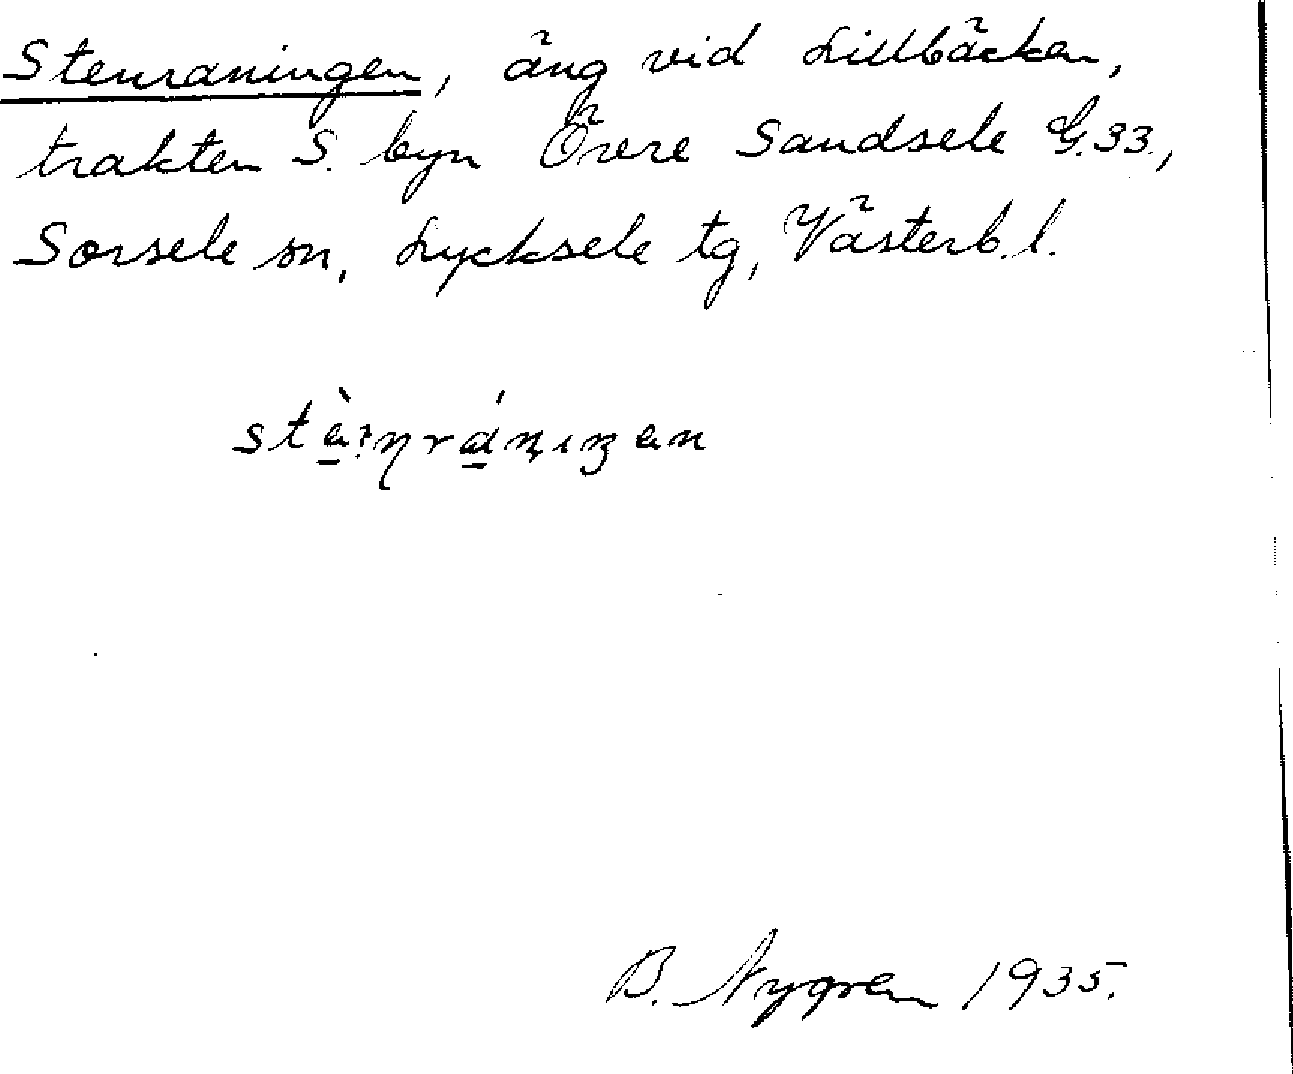 Stenraningen, äng vid Lillbäcken,
trakten S. byn Övre Sandsele G.33,
Sorsele sn, Lycksele tg, Västerb.l.
B. Nygren 1935.